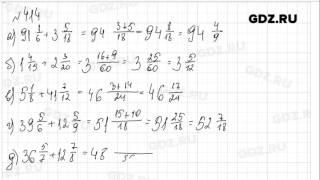 GDZ.RU
№414
а) 91 1/6 + 3 5/18 = 94 (3+5)/18 = 94 8/18 = 94 4/9
б) 1 4/15 + 2 3/20 = 3 (16+9)/60 = 3 25/60 = 3 5/12
в) 5 1/8 + 41 7/12 = 46 (3+14)/24 = 46 17/24
г) 39 5/6 + 12 5/9 = 51 (15+10)/18 = 51 25/18 = 52 7/18
д) 36 5/7 + 12 7/8 = 48